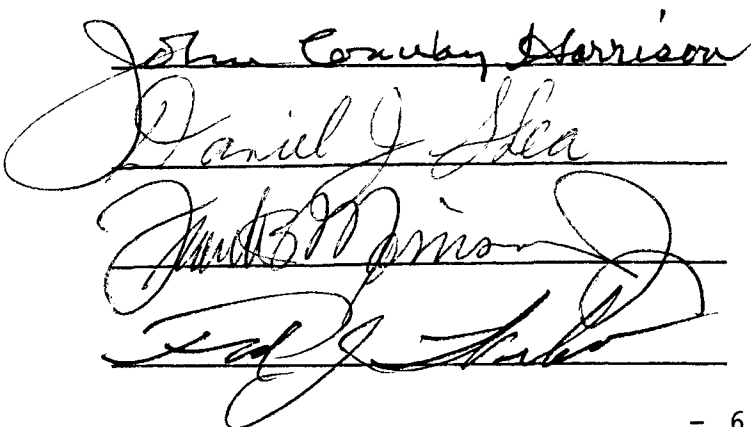 John Conway Harrison
Daniel J. Shea
Frank B. Morrison Jr
Fred J.
- 6